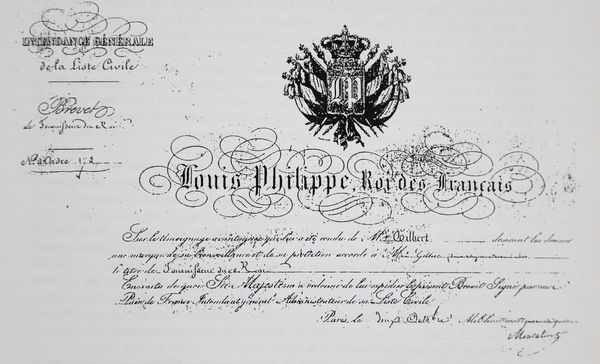 INTENDANCE GÉNÉRALE
de la Liste Civile
Brevet
de Fournisseur du Roi
N.º d'Ordre 172
LP
Louis Philippe, Roi des Français
Sur le témoignage avantageux qui lui a été rendu de Mr Gilbert desirant lui donner
une marque de sa bienveillance et de sa protection accorde à Mr Gilbert
le titre de Fournisseur du Roi
En vertu de quoi Sa Majesté m'a ordonné de lui expédier le présent Brevet Signé par nous
Pair de France Intendant général Administrateur de sa Liste Civile
Paris, le Octobre
Montalivet